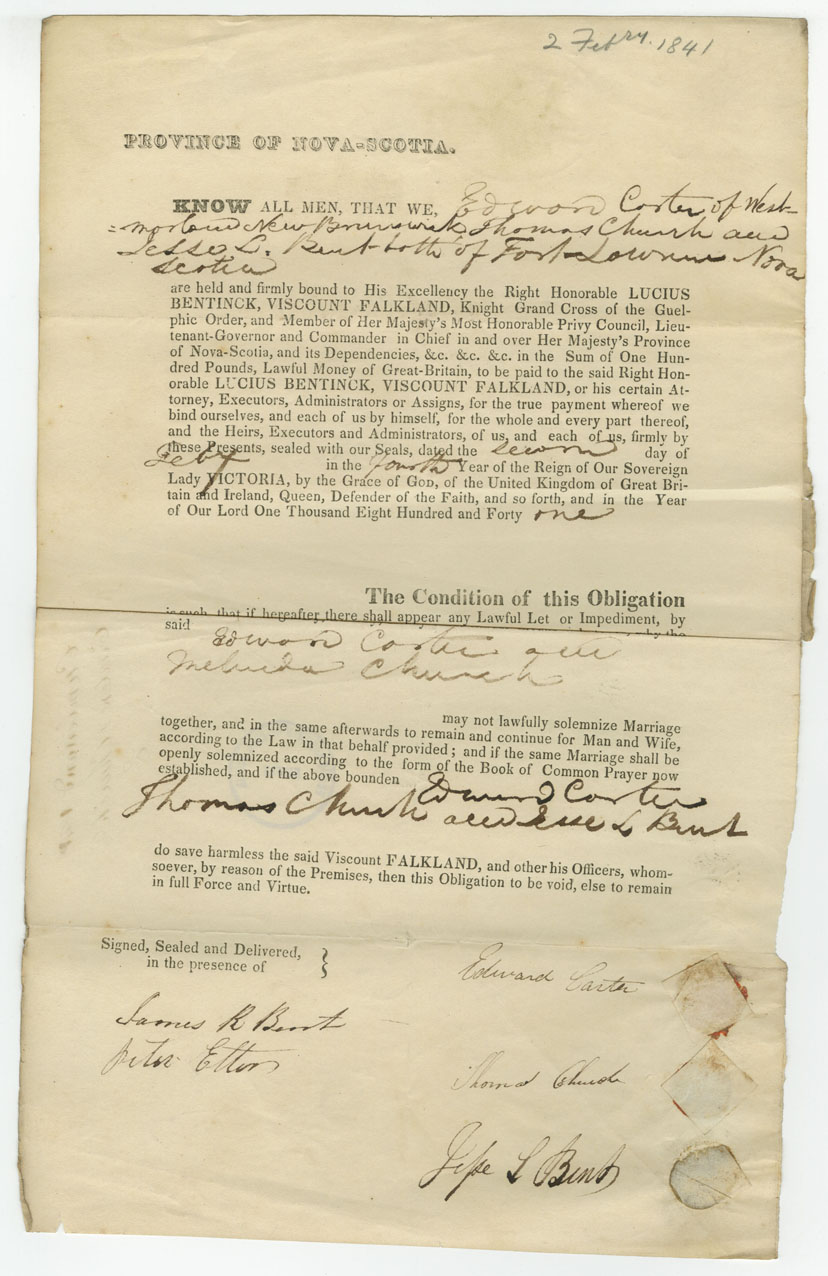 2 Febry. 1841
PROVINCE OF NOVA-SCOTIA.
KNOW ALL MEN, THAT WE, Edward Carter of West-
=morland New Brunswick Thomas Church and
Jesse L. Bent both of Fort Lawrence Nova
Scotia
are held and firmly bound to His Excellency the Right Honorable LUCIUS
BENTINCK, VISCOUNT FALKLAND, Knight Grand Cross of the Guel-
phic Order, and Member of Her Majesty's Most Honorable Privy Council, Lieu-
tenant-Governor and Commander in Chief in and over Her Majesty's Province
of Nova-Scotia, and its Dependencies, &c. &c. &c. in the Sum of One Hun-
dred Pounds, Lawful Money of Great-Britain, to be paid to the said Right Hon-
orable LUCIUS BENTINCK, VISCOUNT FALKLAND, or his certain At-
torney, Executors, Administrators or Assigns, for the true payment whereof we
bind ourselves, and each of us by himself, for the whole and every part thereof,
and the Heirs, Executors and Administrators, of us, and each of us, firmly by
these Presents, sealed with our Seals, dated the day of
Feby in the fourth Year of the Reign of Our Sovereign
Lady VICTORIA, by the Grace of GOD, of the United Kingdom of Great Bri-
tain and Ireland, Queen, Defender of the Faith, and so forth, and in the Year
of Our Lord One Thousand Eight Hundred and Forty one
The Condition of this Obligation
is such, that if hereafter there shall appear any Lawful Let or Impediment, by
said by the
Edward Carter and
Melinda Church
may not lawfully solemnize Marriage
together, and in the same afterwards to remain and continue for Man and Wife,
according to the Law in that behalf provided; and if the same Marriage shall be
openly solemnized according to the form of the Book of Common Prayer now
established, and if the above bounden Edward Carter
Thomas Church and Jesse L Bent
do save harmless the said Viscount FALKLAND, and other his Officers, whom-
soever, by reason of the Premises, then this Obligation to be void, else to remain
in full Force and Virtue.
Signed, Sealed and Delivered,
in the presence of }
James R Bent
Peter Etter
Edward Carter
Thomas Church
Jesse L Bent